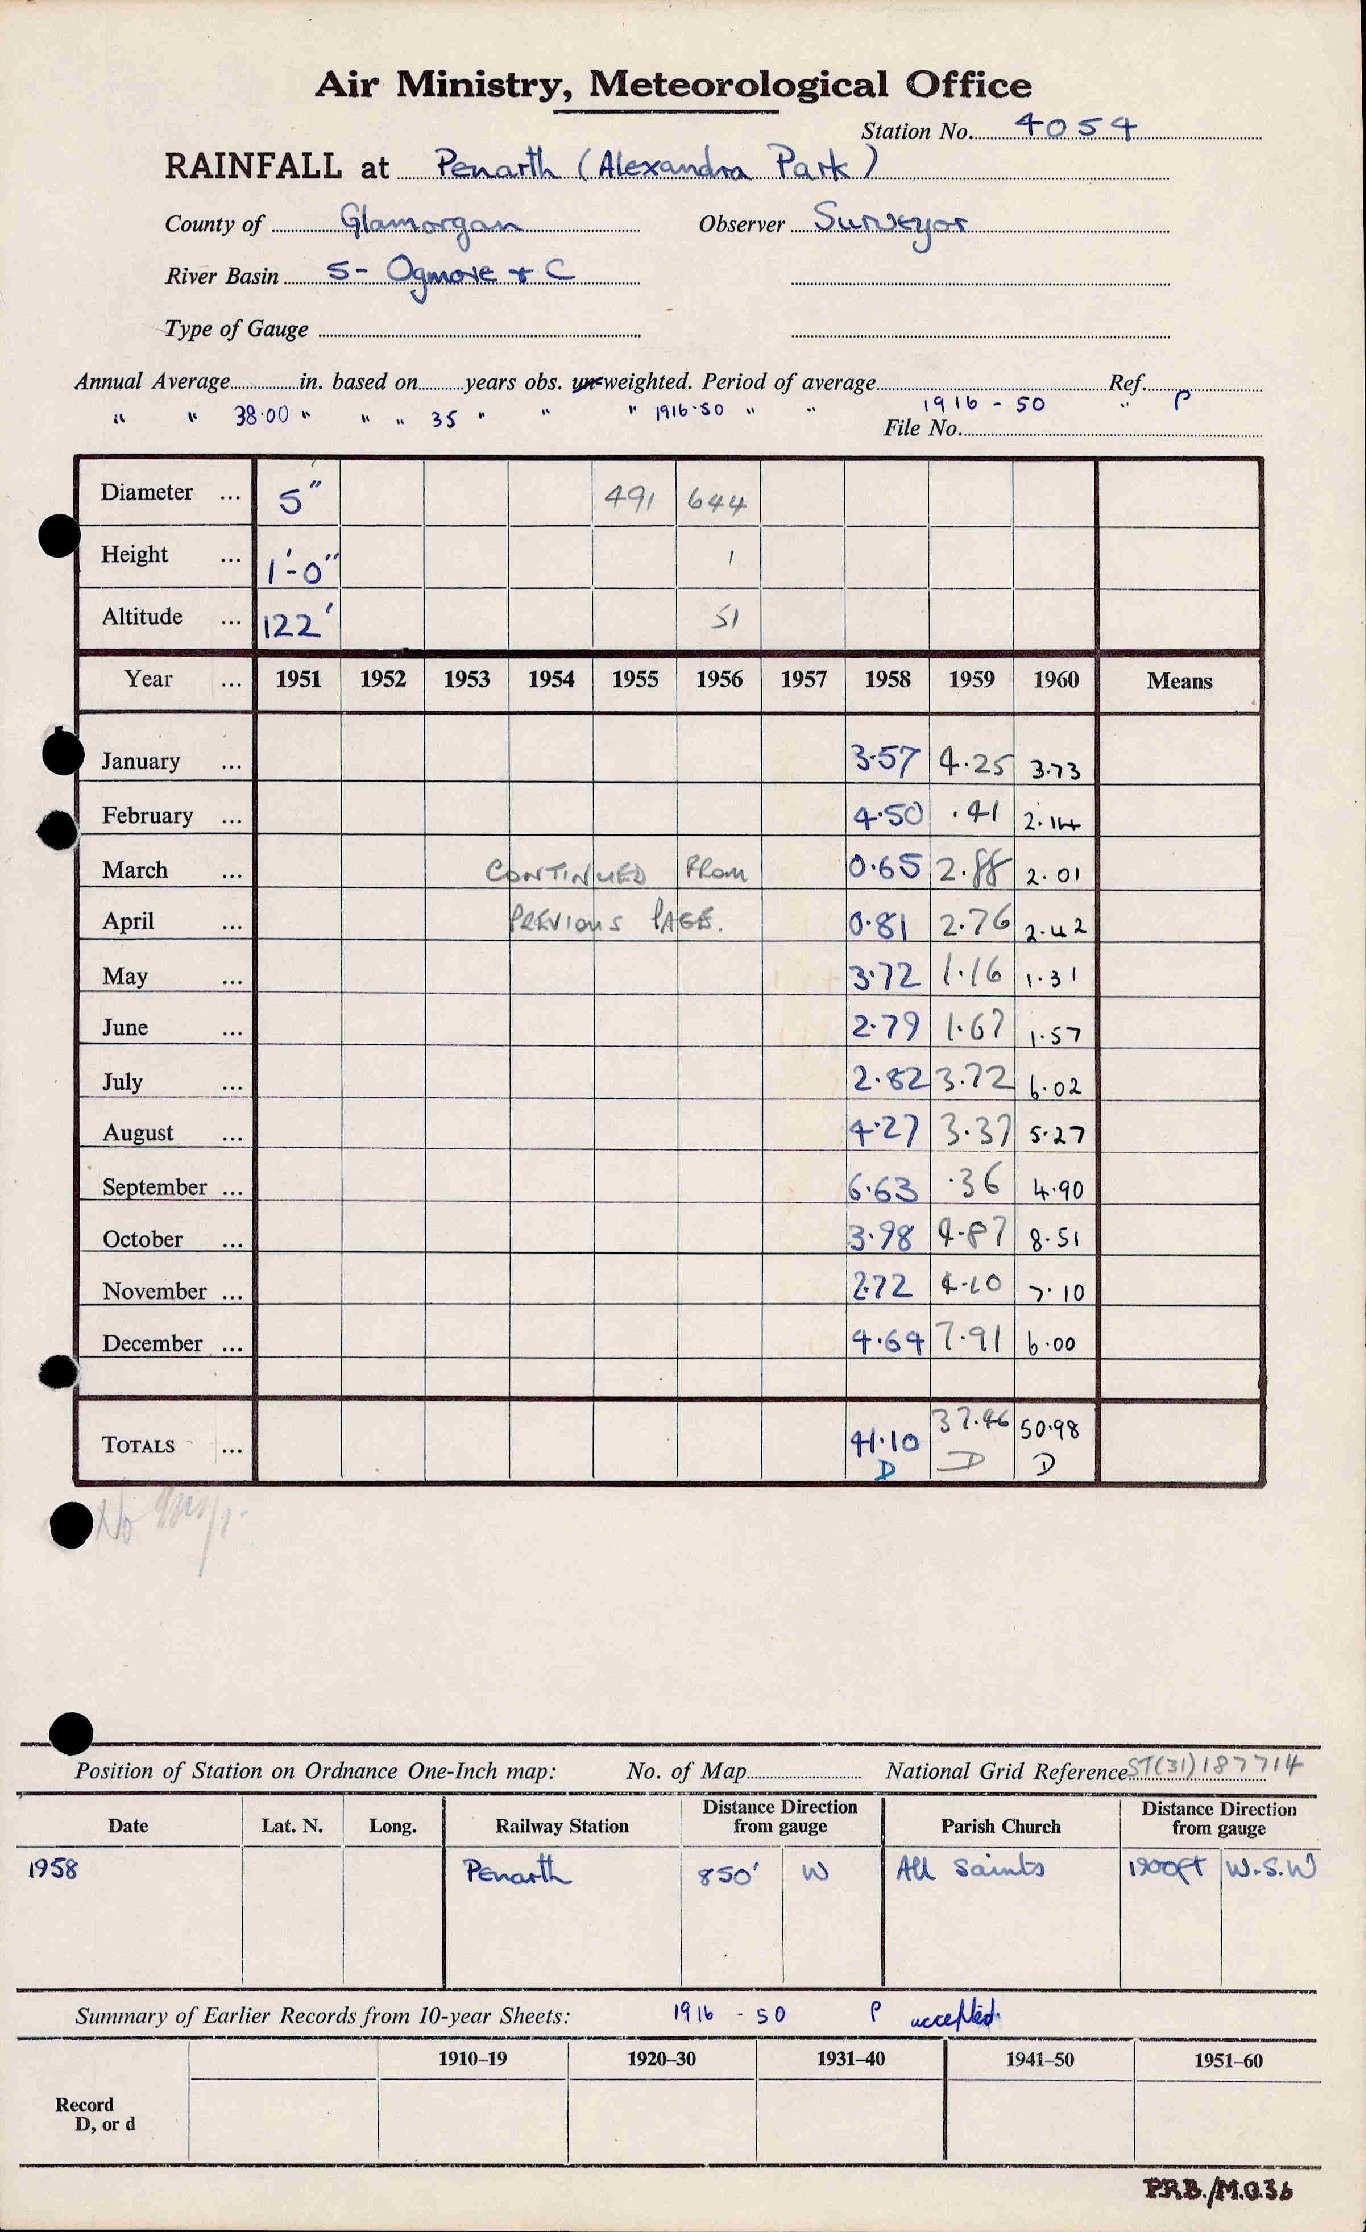 Air Ministry, Meteorological Office
Station No. 4054
RAINFALL at Penarth (Alexandra Park)
County of Glamorgan Observer Surveyor
River Basin S- Ogmore + C
Type of Gauge
Annual Average in. based on years obs. un-weighted. Period of average Ref.
" " 38.00 " " " 35 " " " 1916-50 " " 1916 - 50 " P
File No.
Diameter ... 5" 491 644
Height ... 1'-0" 1
Altitude ... 122' 51
Year ... 1951 1952 1953 1954 1955 1956 1957 1958 1959 1960 Means
January ... 3.57 4.25 3.73
February ... 4.50 .41 2.14
March ... CONTINUED FROM 0.65 2.88 2.01
April ... PREVIOUS PAGE. 0.81 2.76 2.42
May ... 3.72 1.16 1.31
June ... 2.79 1.67 1.57
July ... 2.82 3.72 6.02
August ... 4.27 3.37 5.27
September ... 6.63 .36 4.90
October ... 3.98 4.87 8.51
November ... 2.72 4.10 7.10
December ... 4.64 7.91 6.00
TOTALS ... 41.10 37.46 50.98
D D D
No
Position of Station on Ordnance One-Inch map: No. of Map National Grid Reference ST(31)187714
Date Lat. N. Long. Railway Station Distance Direction from gauge Parish Church Distance Direction from gauge
1958 Penarth 850' W All Saints 1900ft W.S.W
Summary of Earlier Records from 10-year Sheets: 1916 - 50 P accepted.
1910–19 1920–30 1931–40 1941–50 1951–60
Record
D, or d
P.R.B./M.O.36